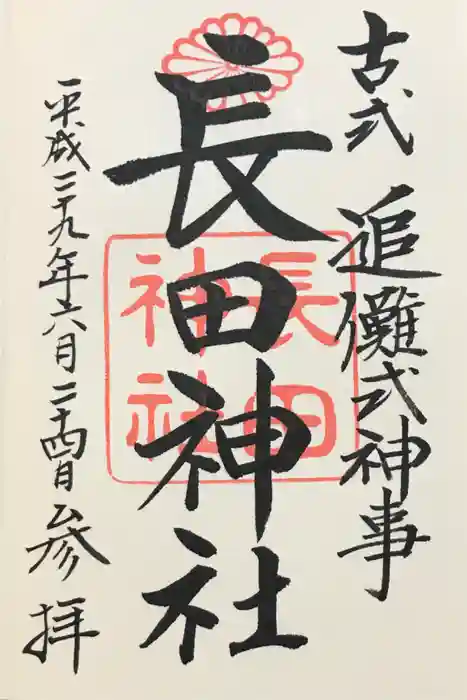 古式 追儺式神事
長田神社
平成二十九年六月二十四日 参拝
長田
神社